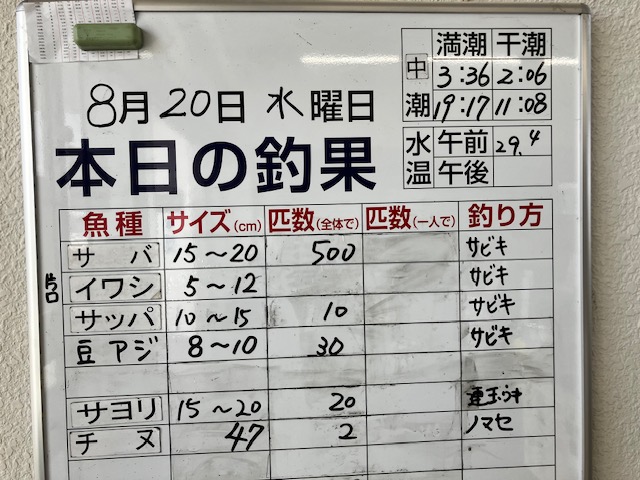 満潮 干潮
中潮 3:36 2:06
19:17 11:08
8月20日 水曜日
水温 午前 29.4
午後
本日の釣果
魚種 サイズ(cm) 匹数(全体で) 匹数(一人で) 釣り方
サバ 15~20 500 サビキ
片口 イワシ 5~12 サビキ
サッパ 10~15 10 サビキ
豆アジ 8~10 30 サビキ
サヨリ 15~20 20
チヌ 47 2 ノマセ